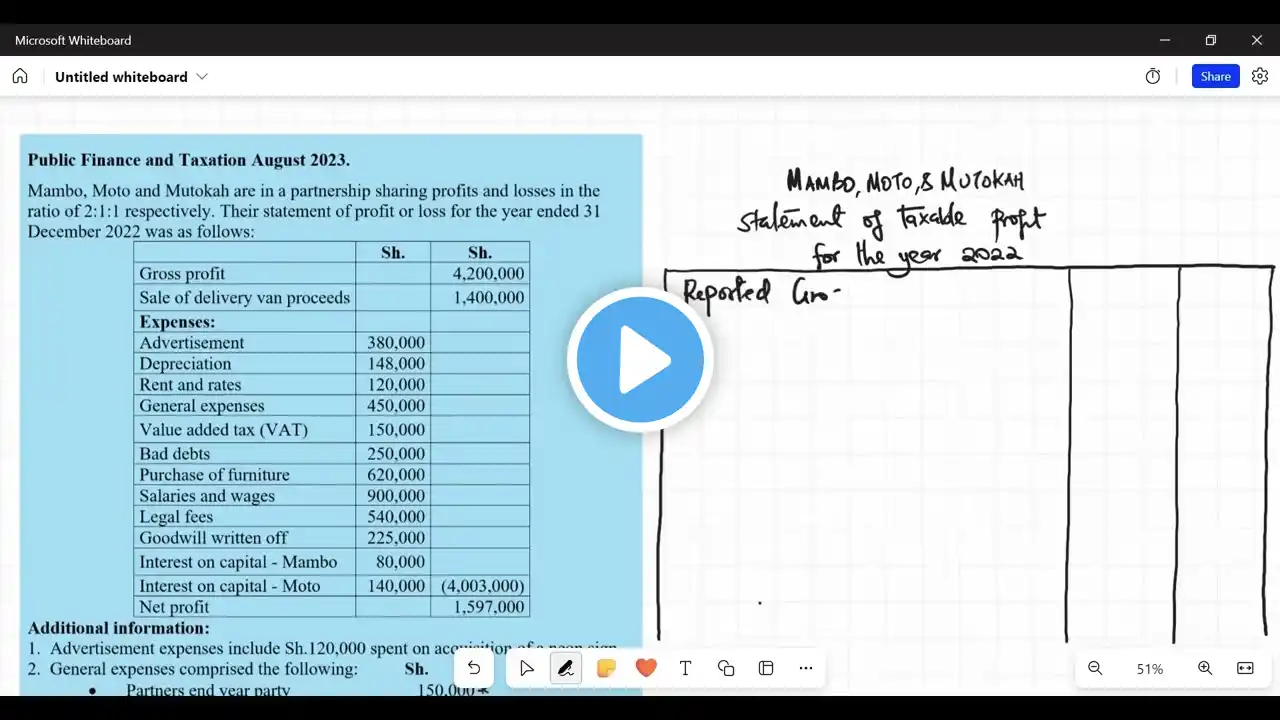 Microsoft Whiteboard
Untitled whiteboard
Share
Public Finance and Taxation August 2023.
Mambo, Moto and Mutokah are in a partnership sharing profits and losses in the
ratio of 2:1:1 respectively. Their statement of profit or loss for the year ended 31
December 2022 was as follows:
Sh. Sh.
Gross profit 4,200,000
Sale of delivery van proceeds 1,400,000
Expenses:
Advertisement 380,000
Depreciation 148,000
Rent and rates 120,000
General expenses 450,000
Value added tax (VAT) 150,000
Bad debts 250,000
Purchase of furniture 620,000
Salaries and wages 900,000
Legal fees 540,000
Goodwill written off 225,000
Interest on capital - Mambo 80,000
Interest on capital - Moto 140,000 (4,003,000)
Net profit 1,597,000
Additional information:
1. Advertisement expenses include Sh.120,000 spent on acquisition of a neon sign
2. General expenses comprised the following: Sh.
• Partners end year party 150,000
MAMBO, MOTO, & MUTOKAH
Statement of taxable profit
for the year 2022
Reported Gro
51%